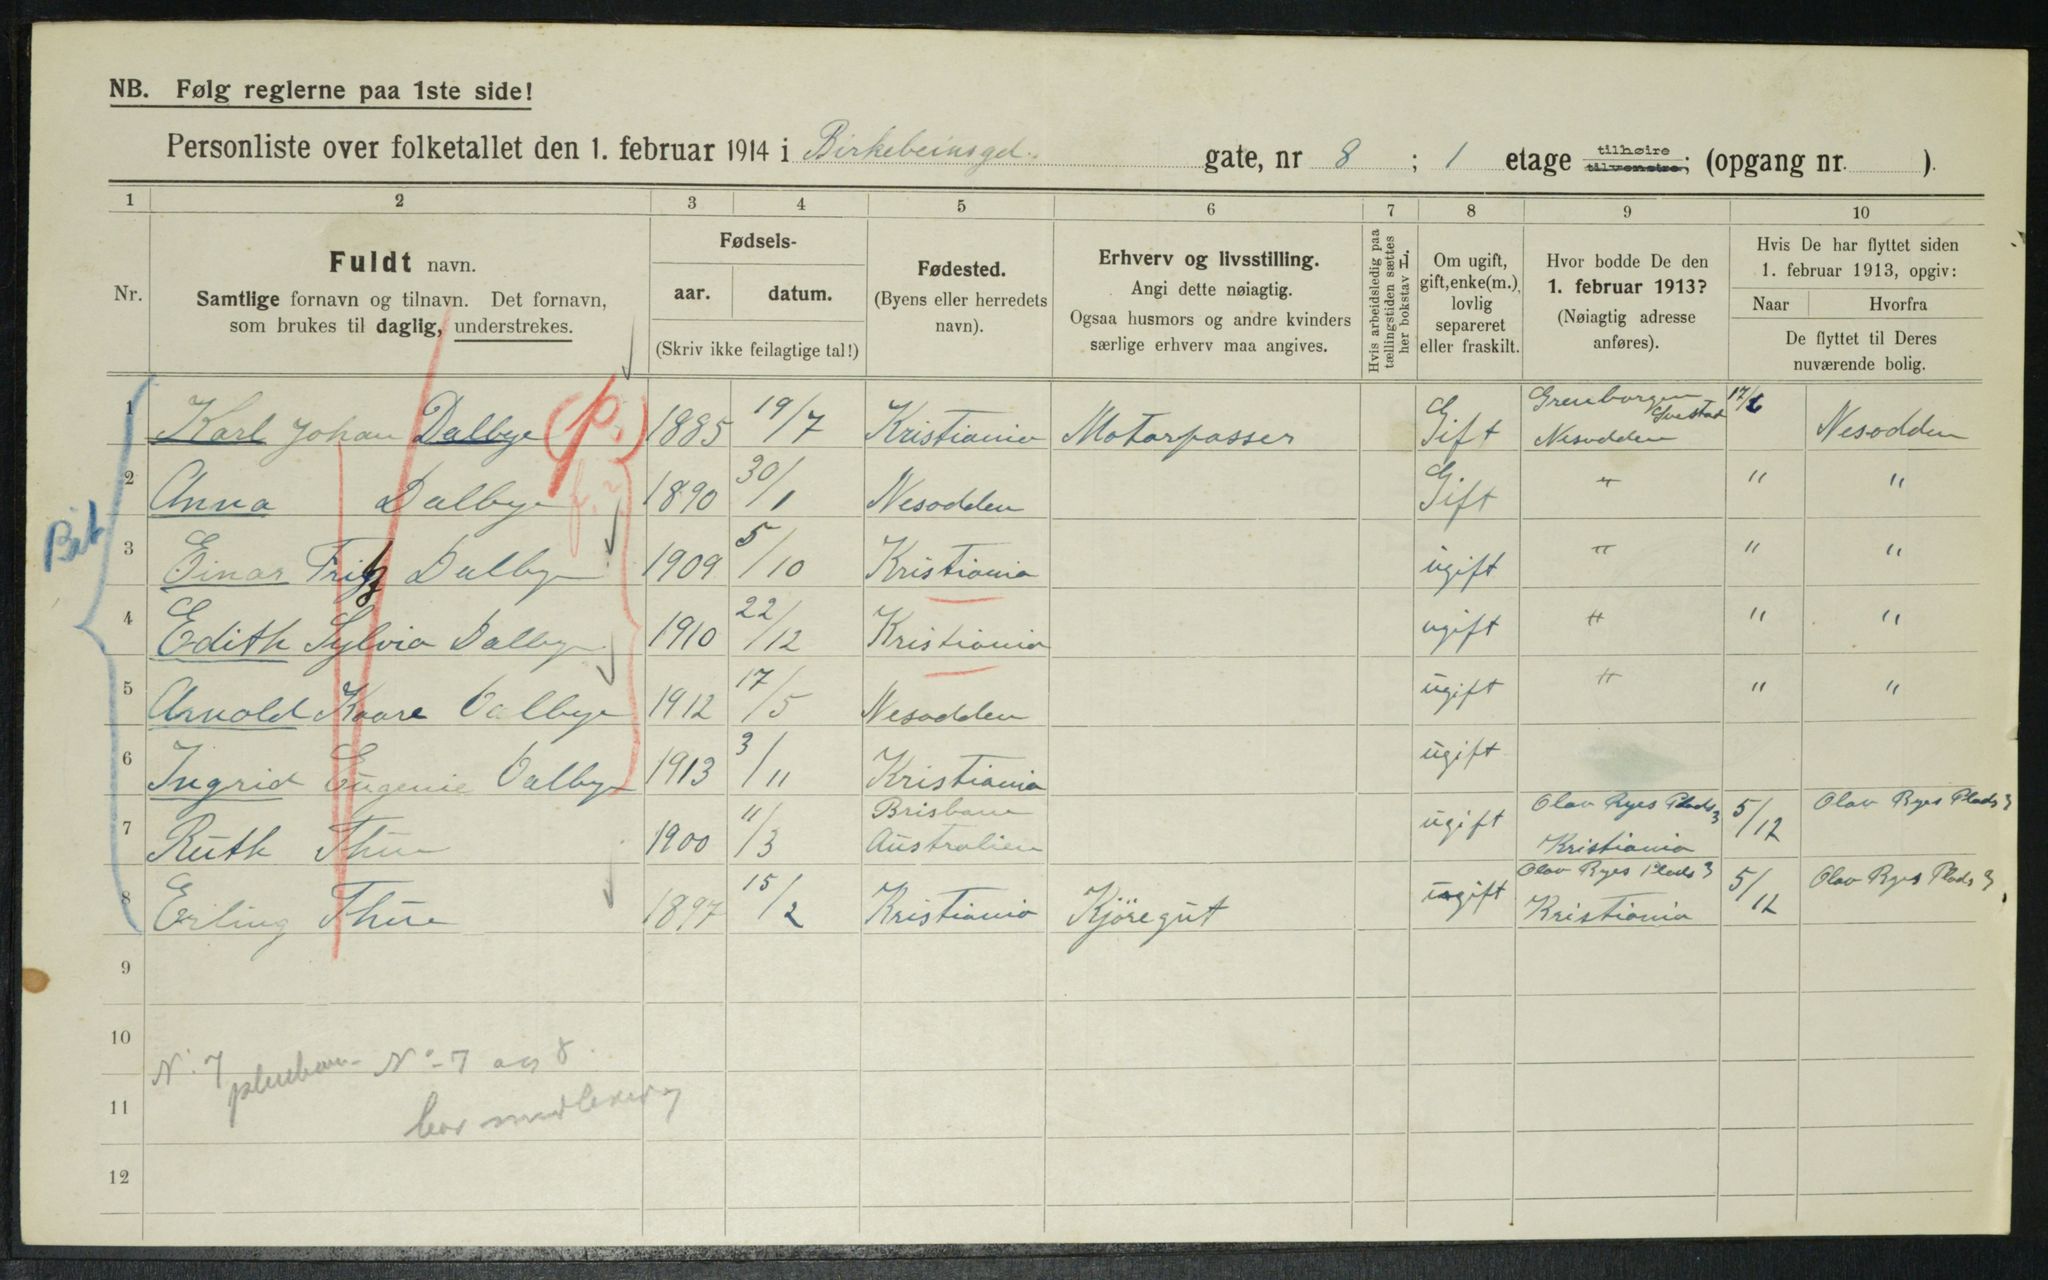 NB. Følg reglerne paa 1ste side!
Personliste over folketallet den 1. februar 1914 i Birkebeinsgd. gate, nr 8 ; 1 etage tilhøire tilvenstre; (opgang nr. ).
1 2 3 4 5 6 7 8 9 10
Nr.
Fuldt navn.
Samtlige fornavn og tilnavn. Det fornavn,
som brukes til daglig, understrekes.
Fødsels-
aar. datum.
(Skriv ikke feilagtige tal!)
Fødested.
(Byens eller herredets
navn).
Erhverv og livsstilling.
Angi dette nøiagtig.
Ogsaa husmors og andre kvinders
særlige erhverv maa angives.
Hvis arbeidsledig paa
tællingstiden sættes
her bokstav L.
Om ugift,
gift, enke(m.),
lovlig
separeret
eller fraskilt.
Hvor bodde De den
1. februar 1913?
(Nøiagtig adresse
anføres).
Hvis De har flyttet siden
1. februar 1913, opgiv:
Naar Hvorfra
De flyttet til Deres
nuværende bolig.
1 Karl Johan Dalbye (p.) 1885 19/7 Kristiania Motorpasser Gift Nesodden Nesodden
2 Anna Dalbye 1890 30/1 Nesodden Gift " " "
3 Einar Fritz Dalbye 1909 5/10 Kristiania ugift " " "
4 Edith Sylvia Dalbye 1910 22/12 Kristiania ugift " " "
5 Arnold Kaare Dalbye 1912 17/5 Nesodden ugift " " "
6 Ingrid Eugenie Dalbye 1913 3/11 Kristiania ugift
7 Ruth Thue 1900 11/3 Brisbane Australien ugift Olav Ryes Plads 3 Kristiania 5/12 Olav Ryes Plads 3
8 Erling Thue 1897 15/2 Kristiania Kjøregut ugift Olav Ryes Plads 3 Kristiania 5/12 Olav Ryes Plads 3
9
10
N. 7 No 7 og 8
11
bor
12